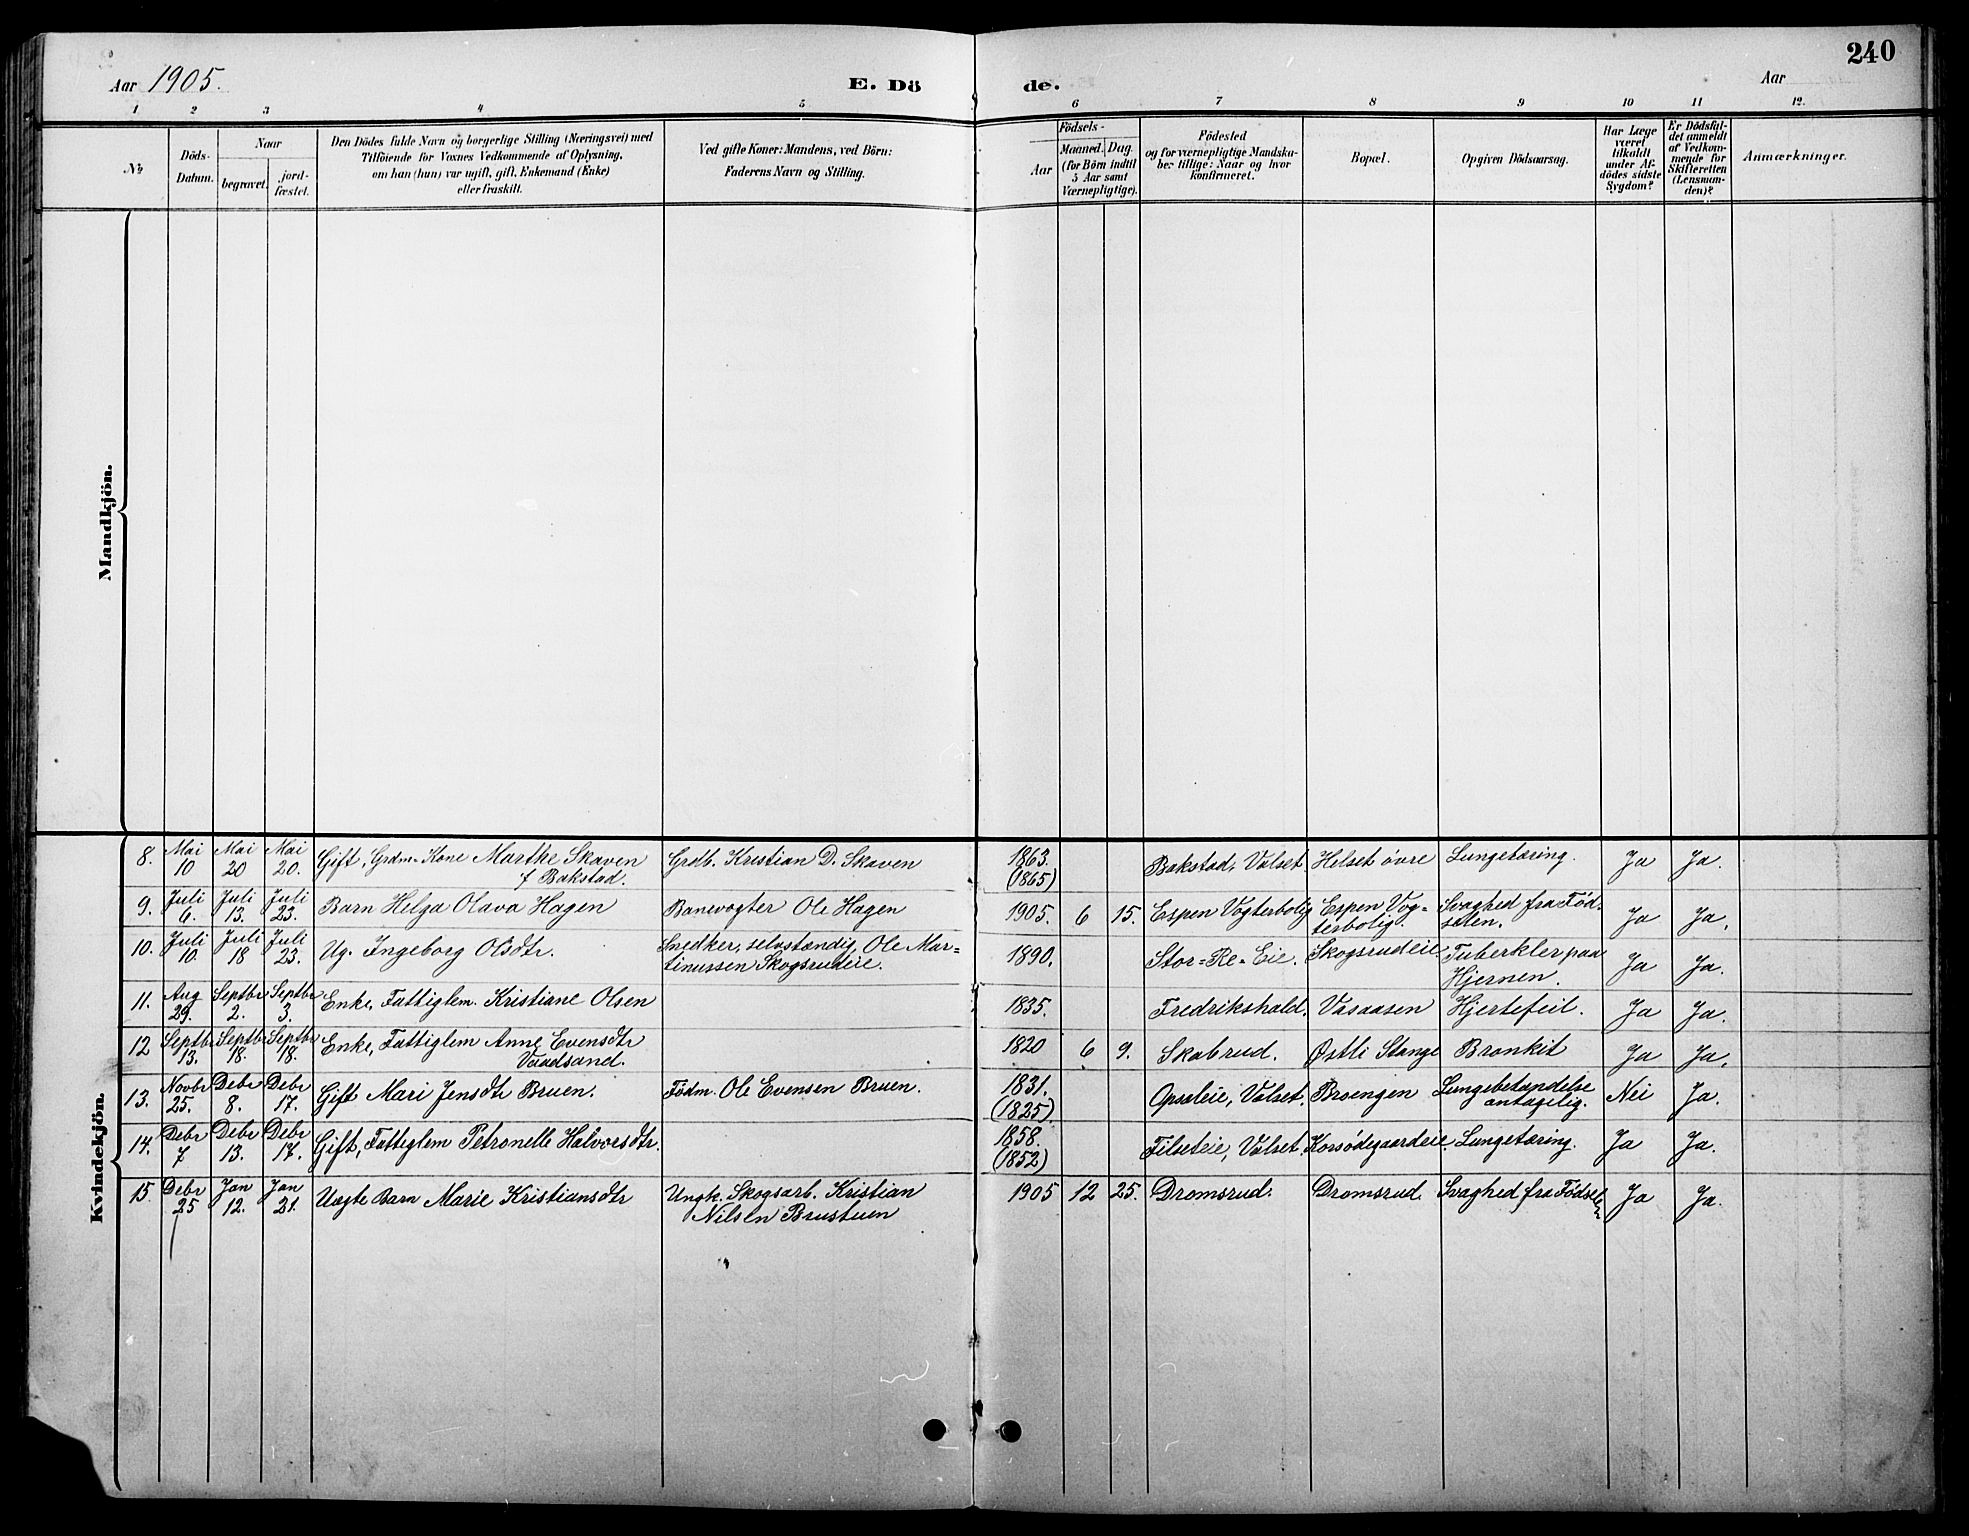 240
Aar 1905.
E. Dö
de.
Aar
1 2 3 4 5 6 7 8 9 10 11 12.
No
Döds-
Datum.
Naar
begravet.
jord-
fæstet.
Den Dödes fulde Navn og borgerlige Stilling (Næringsvei) med
Tilföiende for Voxnes Vedkommende af Oplysning,
om han (hun) var ugift, gift, Enkemand (Enke)
eller fraskilt.
Ved gifte Koner: Mandens, ved Börn:
Faderens Navn og Stilling.
Födsels-
Aar
Maaned. Dag.
(for Börn indtil
5 Aar samt
Værnepligtige).
Födested
og for værnepligtige Mandska-
ber tillige: Naar og hvor
konfirmeret.
Bopæl.
Opgiven Dödsaarsag.
Har Læge
været
tilkaldt
under Af-
dödes sidste
Sygdom?
Er Dödsfal-
det anmeldt
af Vedkom-
mende for
Skifteretten
(Lensman-
den)?
Anmærkninger.
Mandkjön.
Kvindekjön.
8. Mai 10 Mai 20 Mai 20. Gift, Grdm. Kone Marthe Skaven f Bakstad. Grdb. Kristian D. Skaven 1863. (1865) Bakstad, Valset Helset övre Lungetæring. Ja Ja.
9. Juli 6. Juli 13. Juli 23. Barn Helga Olava Hagen Banevogter Ole Hagen 1905. 6 15. Espen Vogterbolig Espen Vog-
terbolig. Svaghed fra Fød-
selen. Ja Ja.
10. Juli 10. Juli 18 Juli 23. Ug. Ingeborg Olsdtr. Snedker, selvstændig, Ole Mar-
tinussen Skogsrudeie. 1890. Stor-Re-Eie. Skogsrudeie Tuberkler paa
Hjernen. Ja Ja.
11. Aug 29. Septbr 2. Septbr 3. Enke, Fattiglem. Kristiane Olsen 1835. Fredrikshald. Vasaasen Hjertefeil. Ja Ja.
12 Septbr 13. Septbr 18. Septbr 18. Enke, Fattiglem Anne Evensdtr
Vaadsand. 1820 6 9. Skabrud. Østli Stange Bronkit Ja Ja.
13. Novbr 25. Debr 8. Debr 17. Gift Mari Jensdtr Bruen. Födm. Ole Evensen Bruen. 1831. (1825) Opsaleie, Valset. Broengen Lungebetændelse
antagelig. Nei Ja.
14. Debr 7 Debr 13. Debr 17. Gift, Fattiglem Petronelle Halvorsdtr. 1858. (1852) Filseteie, Valset. Korsödegaardeie. Lungetæring. Ja Ja.
15. Debr 25 Jan 12. Jan 21. Uægte Barn Marie Kristiansdtr Ungk. Skogsarb. Kristian
Nilsen Brustuen 1905 12 25. Dromsrud. Dromsrud. Svaghed fra Födselen Ja Ja.